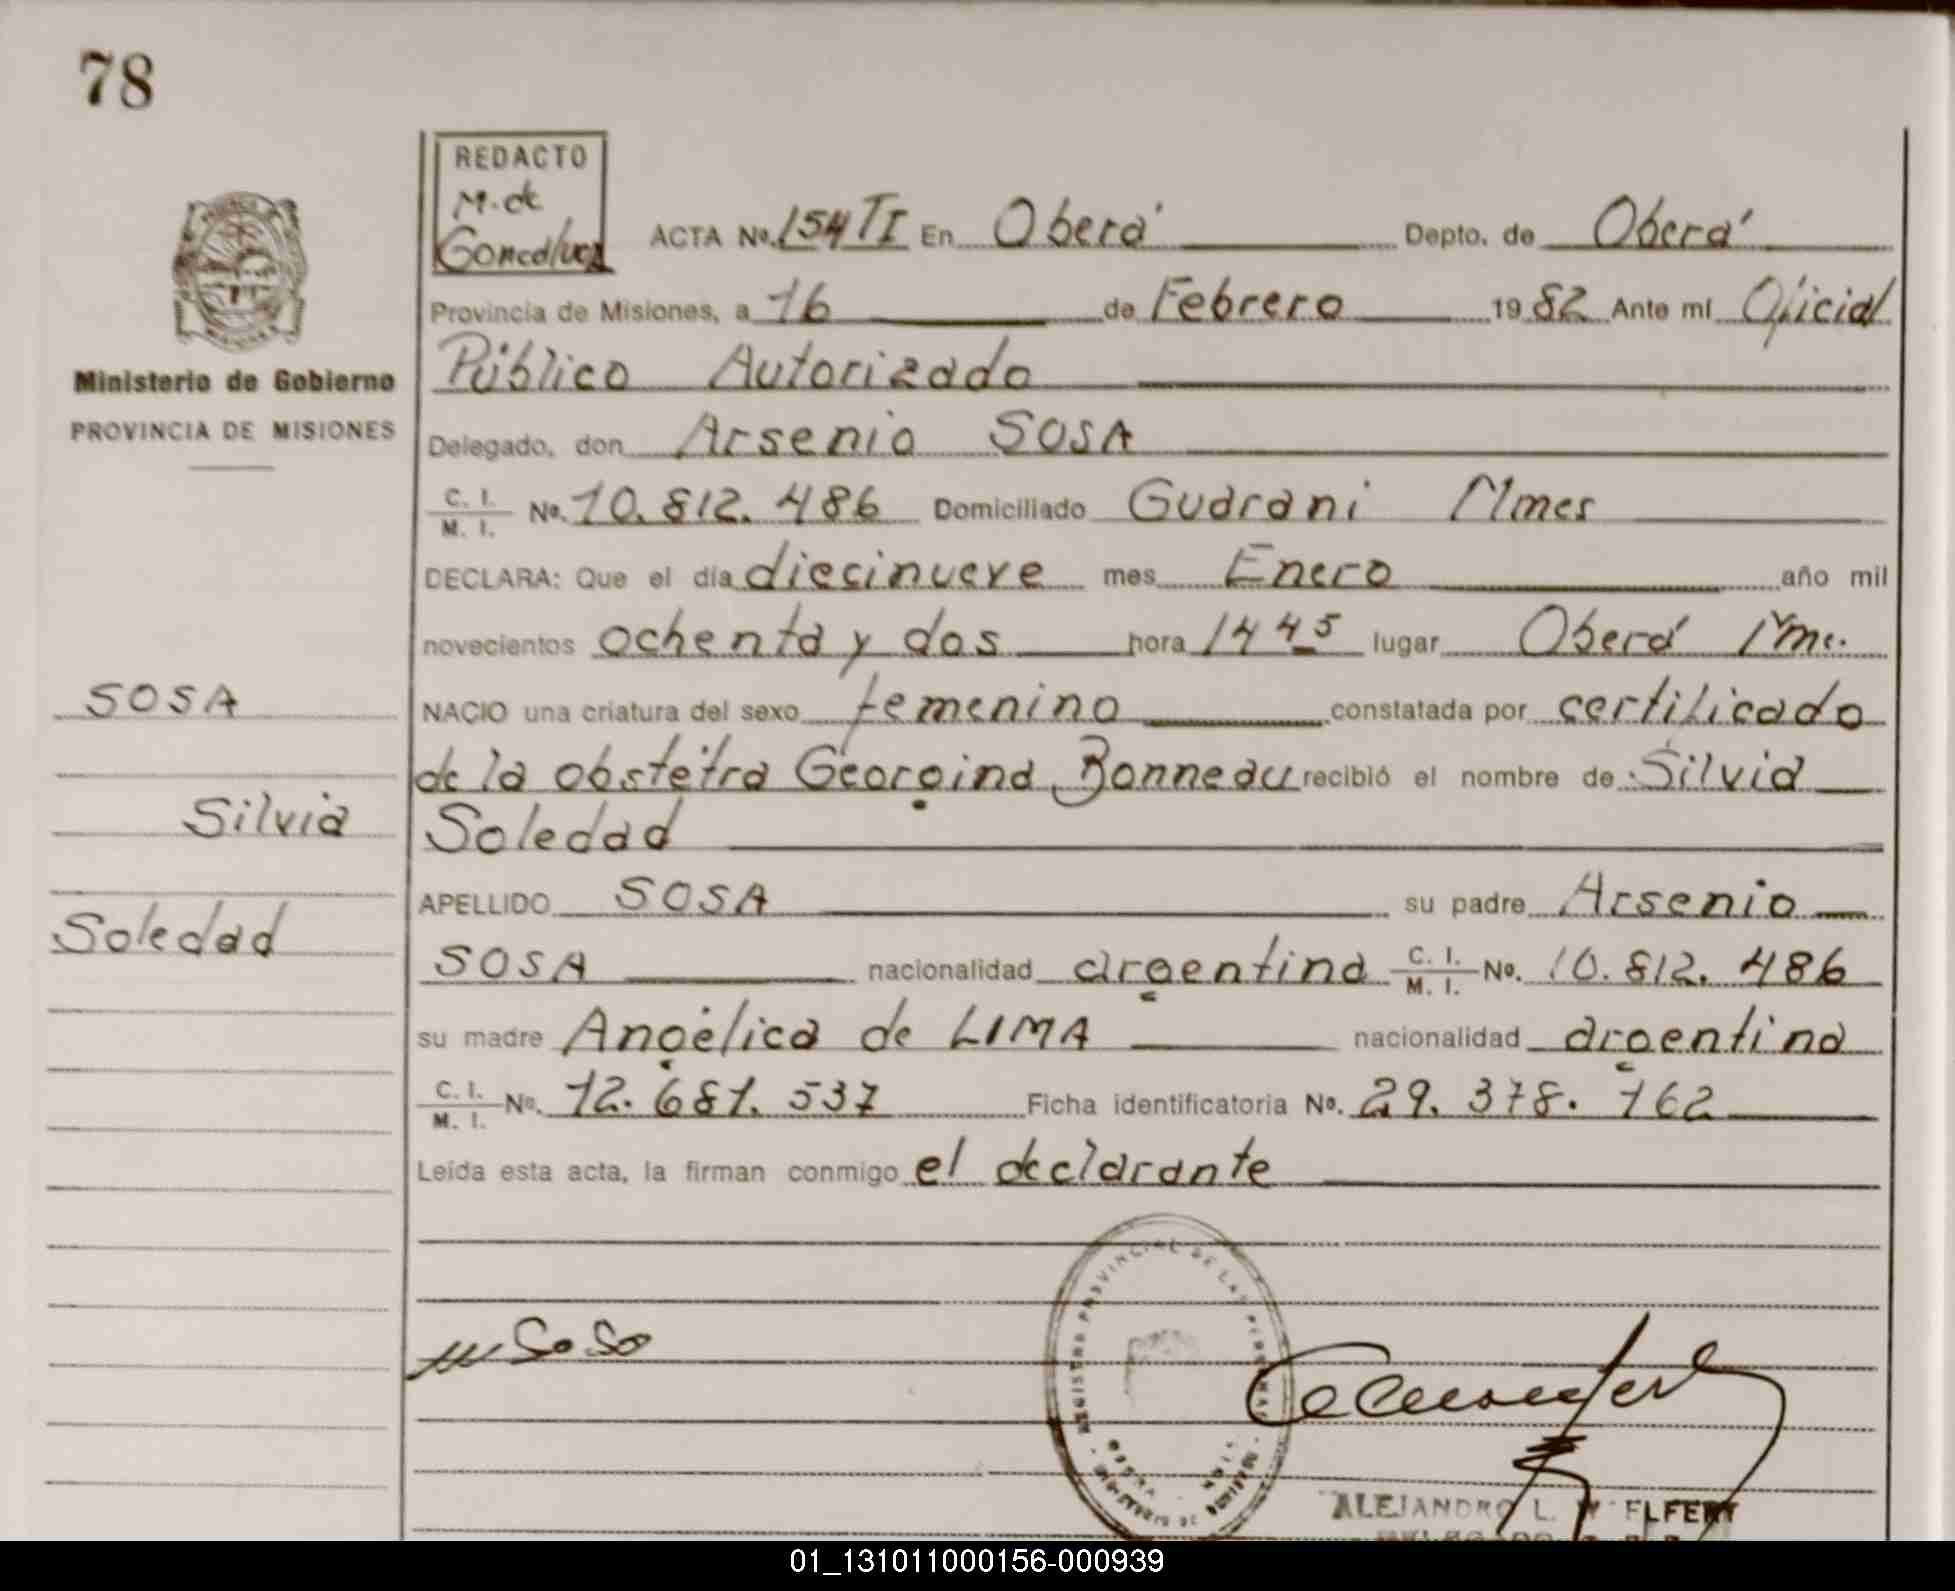 78
REDACTO
M. de
Goncalvez
ACTA No. 154 TI En Oberá Depto. de Oberá
Provincia de Misiones, a 16 de Febrero 1982 Ante mí Oficial
Público Autorizado
Ministerio de Gobierno
PROVINCIA DE MISIONES
Delegado, don Arsenio SOSA
C. I. / M. I. No. 10.812.486 Domiciliado Guarani Mnes
DECLARA: Que el día diecinueve mes Enero año mil
novecientos ochenta y dos hora 14 45 lugar Oberá Mnes.
SOSA
NACIO una criatura del sexo femenino constatada por certificado
de la obstétra Georgina Bonneau recibió el nombre de Silvia
Silvia
Soledad
APELLIDO SOSA su padre Arsenio
Soledad
SOSA nacionalidad argentina C. I. / M. I. No. 10.812.486
su madre Angélica de LIMA nacionalidad argentina
C. I. / M. I. No. 12.681.537 Ficha identificatoria No. 29.378.162
Leída esta acta, la firman conmigo el declarante
REGISTRO PROVINCIAL DE LAS PERSONAS
Sosa
ALEJANDRO L.
01_131011000156-000939